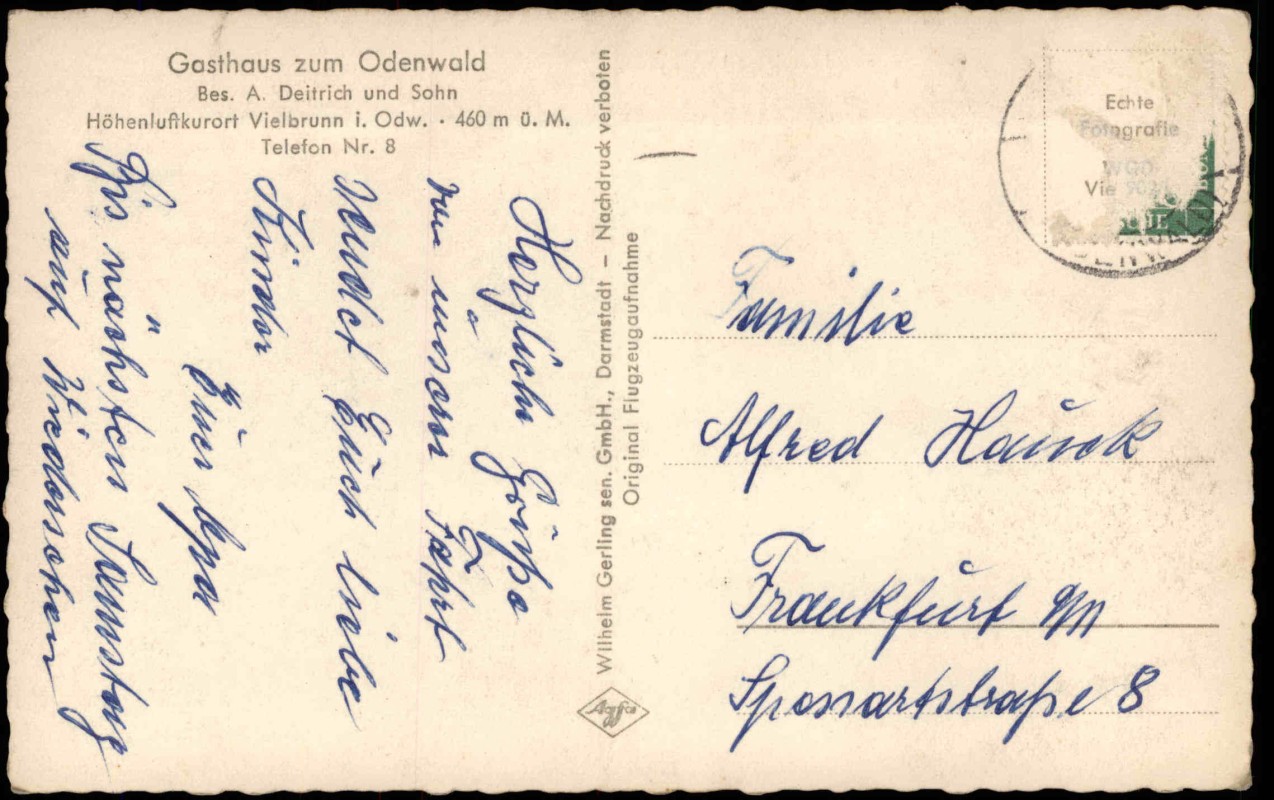 Gasthaus zum Odenwald
Bes. A. Deitrich und Sohn
Höhenluftkurort Vielbrunn i. Odw. · 460 m ü. M.
Telefon Nr. 8
Herzliche Grüße
von unserer Fahrt
sendet Euch liebe
Kinder
Euer Opa
Bis nächsten Samstag
auf Wiedersehen
Wilhelm Gerling sen. GmbH., Darmstadt – Nachdruck verboten
Original Flugzeugaufnahme
Agfa
Echte
Fotografie
WGD
Vie
Familie
Alfred Hauck
Frankfurt a/M
Spessartstraße 8